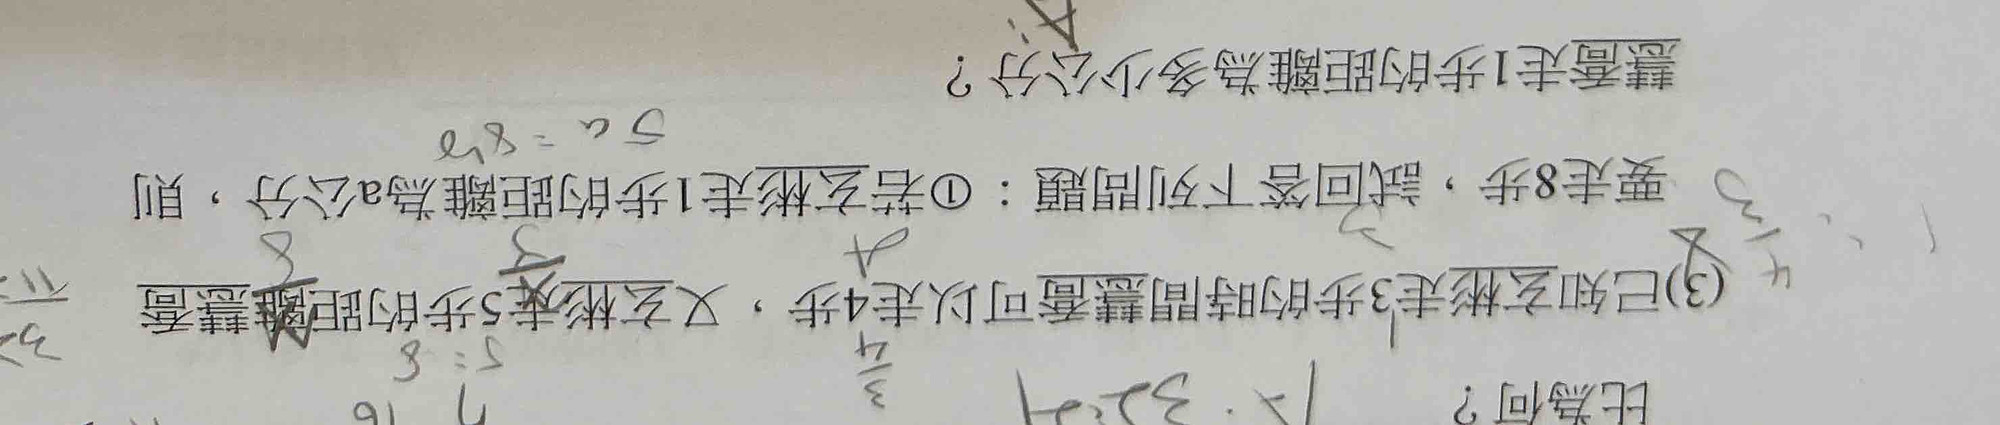 比為何？
(3)已知玄彬走3步的時間慧喬可以走4步，又玄彬走5步的距離慧喬
要走8步，試回答下列問題：①若玄彬走1步的距離為a公分，則
5a = 8b
慧喬走1步的距離為多少公分？
A: